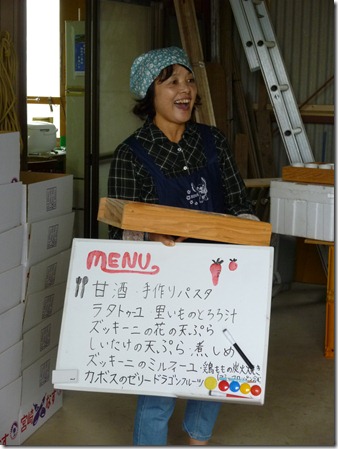 MENU
甘酒・手作りパスタ
ラタトゥユ・里いものとろろ汁
ズッキーニの花の天ぷら
しいたけの天ぷら・煮しめ
ズッキーニのミルフィーユ・鶏ももの炭火焼き
カボスのゼリー・ドラゴンフルーツ
宮崎